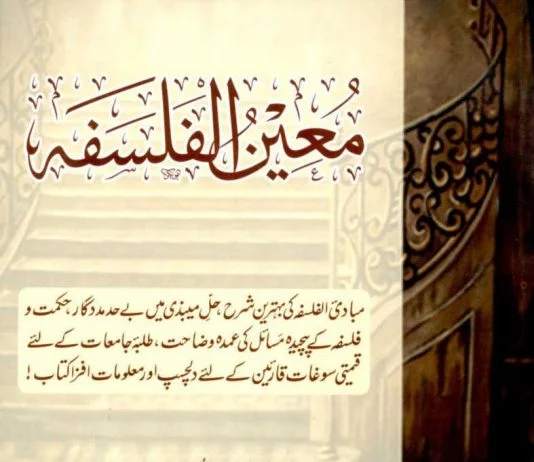 معین الفلسفہ
مبادئ الفلسفہ کی بہترین شرح، حل میبذی میں بے حد مددگار، حکمت و
فلسفہ کے پیچیدہ مسائل کی عمدہ وضاحت، طلبۂ جامعات کے لئے
قیمتی سوغات قارئین کے لئے دلچسپ اور معلومات افزا کتاب!